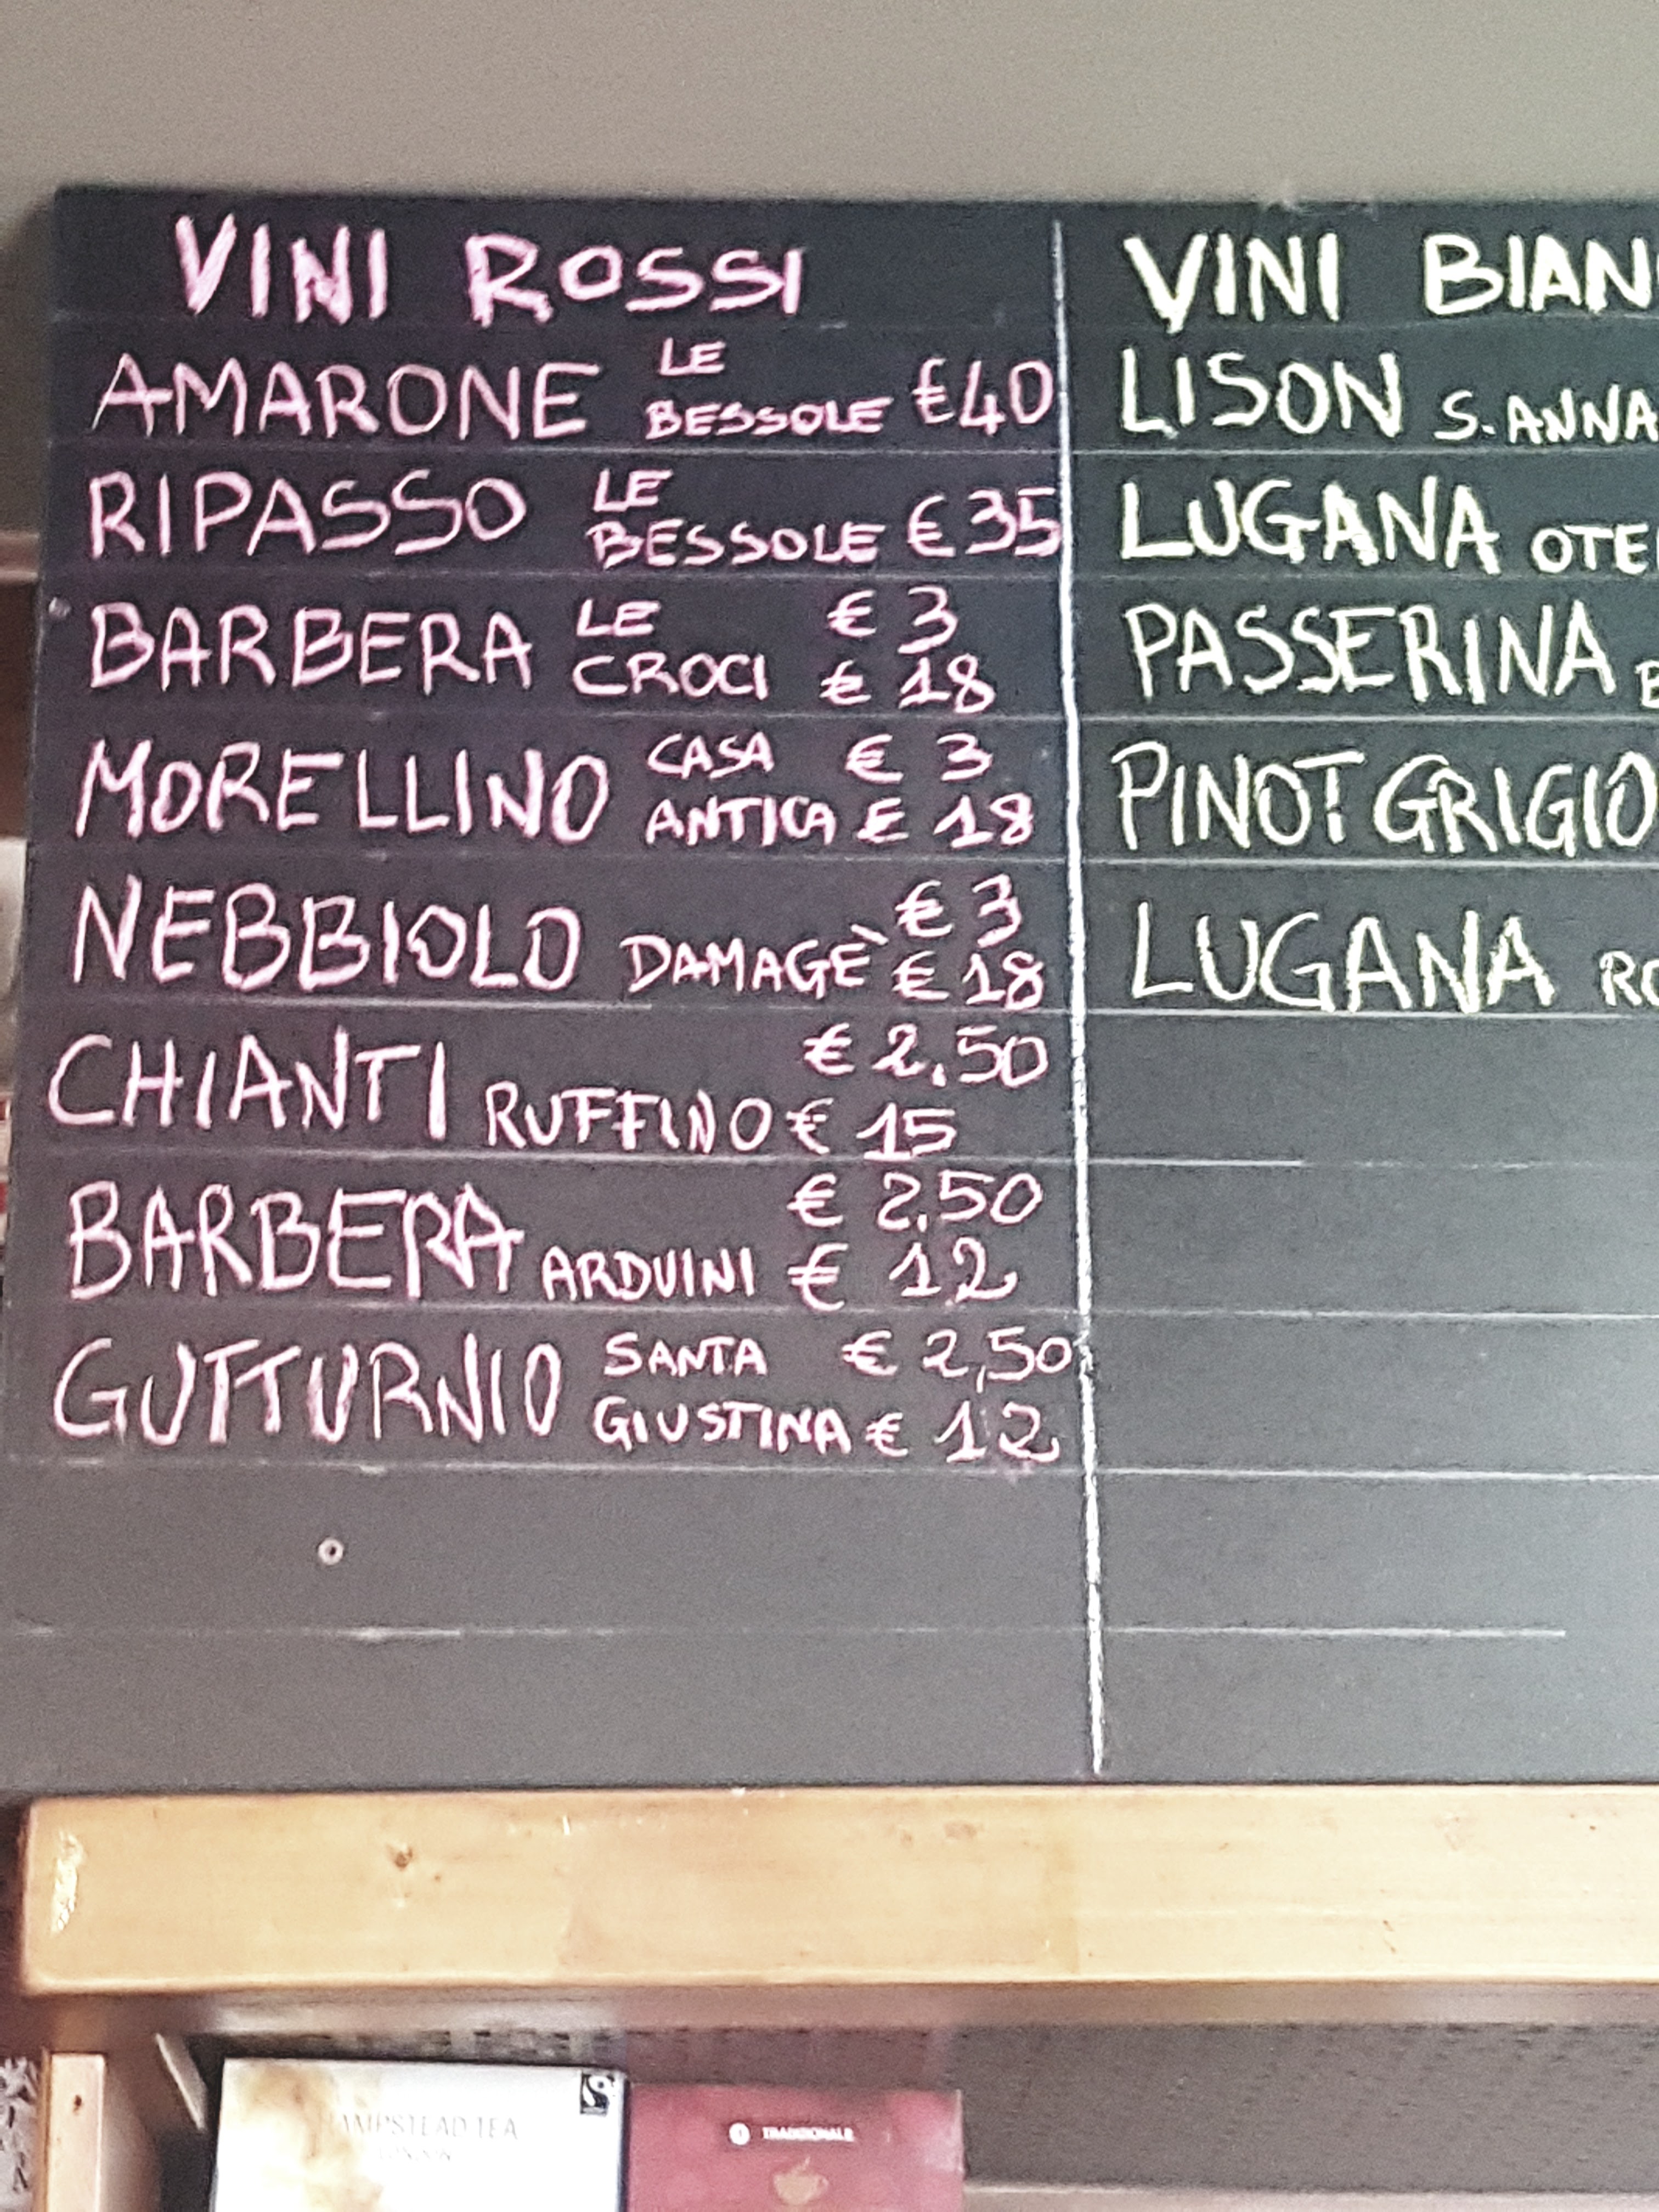 VINI ROSSI
AMARONE LE BESSOLE €40
RIPASSO LE BESSOLE €35
BARBERA LE CROCI € 3 € 18
MORELLINO CASA ANTICA € 3 € 18
NEBBIOLO DAMAGÈ € 3 € 18
CHIANTI RUFFINO € 2.50 € 15
BARBERA ARDUINI € 2.50 € 12
GUTTURNIO SANTA GIUSTINA € 2,50 € 12
VINI BIAN
LISON S. ANNA
LUGANA OTE
PASSERINA
PINOT GRIGIO
LUGANA RO
AMPSTEAD TEA
TRADIZIONALE